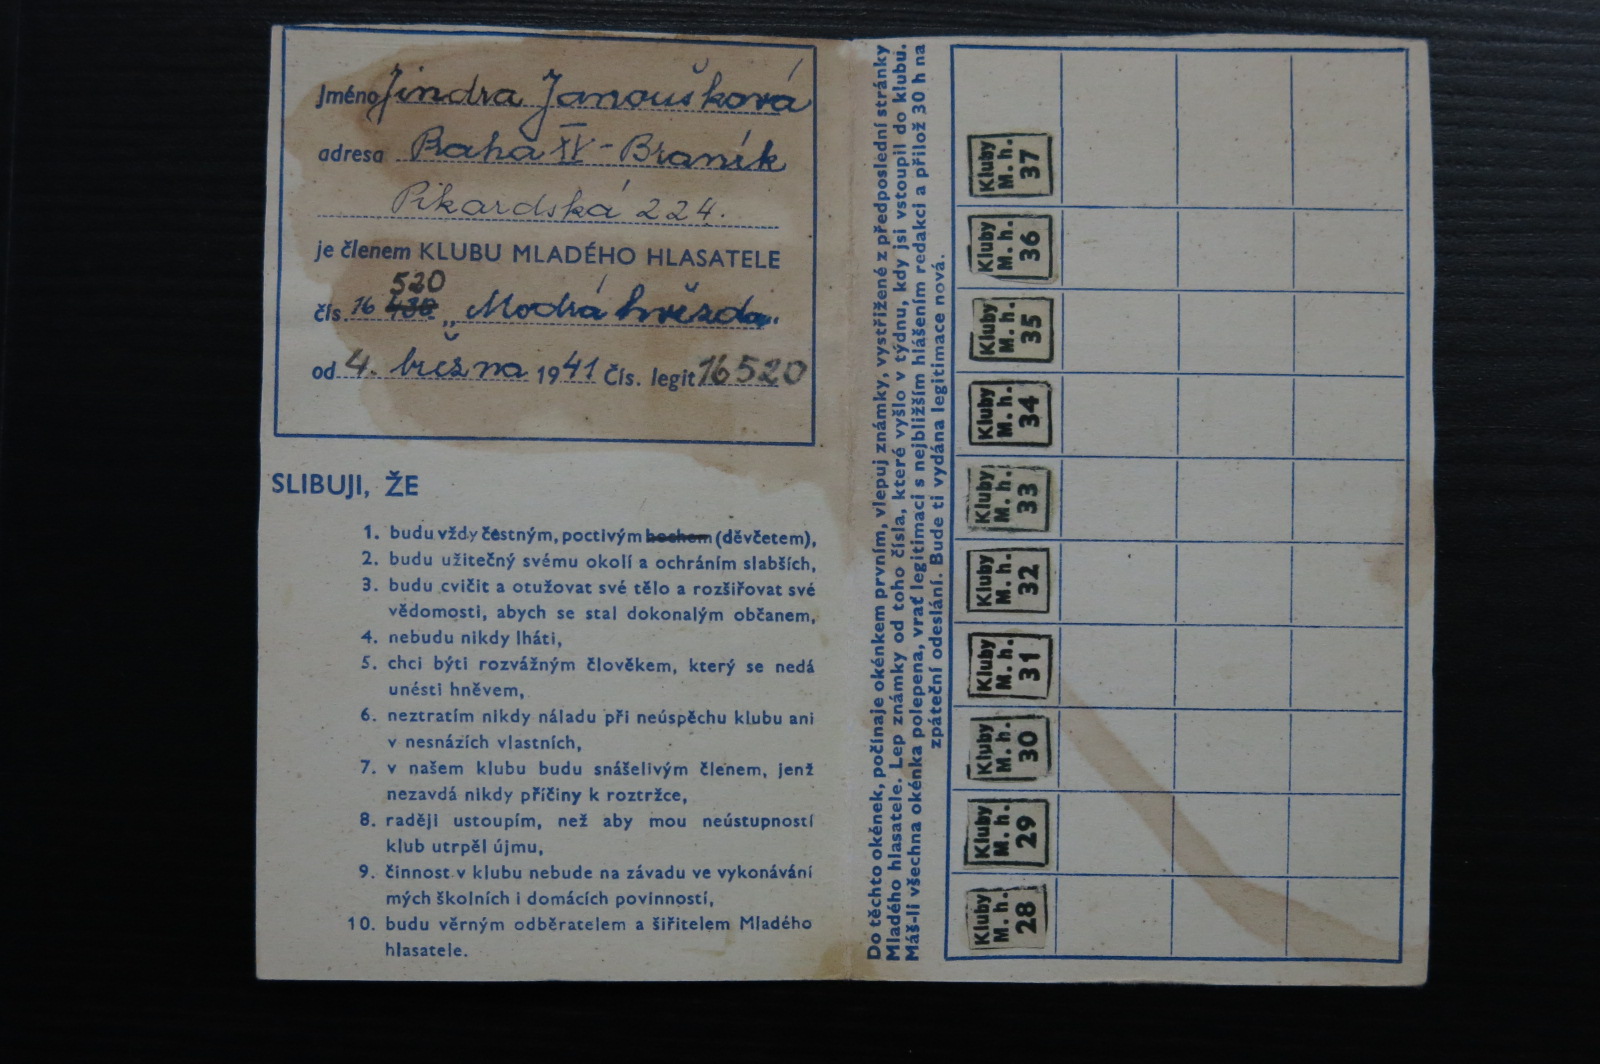 Jméno Jindra Janoušková
adresa Praha XV - Braník
Pikardská 224.
je členem KLUBU MLADÉHO HLASATELE
520
čís. 16 430 „Modrá hvězda.
od 4. března 1941 Čís. legit 16520
SLIBUJI, ŽE
1. budu vždy čestným, poctivým hochem (děvčetem),
2. budu užitečný svému okolí a ochráním slabších,
3. budu cvičit a otužovat své tělo a rozšiřovat své
vědomosti, abych se stal dokonalým občanem,
4. nebudu nikdy lháti,
5. chci býti rozvážným člověkem, který se nedá
unésti hněvem,
6. neztratím nikdy náladu při neúspěchu klubu ani
v nesnázích vlastních,
7. v našem klubu budu snášelivým členem, jenž
nezavdá nikdy příčiny k roztržce,
8. raději ustoupím, než aby mou neústupností
klub utrpěl újmu,
9. činnost v klubu nebude na závadu ve vykonávání
mých školních i domácích povinností,
10. budu věrným odběratelem a šiřitelem Mladého
hlasatele.
Do těchto okének, počínaje okénkem prvním, vlepuj známky, vystřižené z předposlední stránky
Mladého hlasatele. Lep známky od toho čísla, které vyšlo v týdnu, kdy jsi vstoupil do klubu.
Máš-li všechna okénka polepena, vrať legitimaci s nejbližším hlášením redakci a přilož 30 h na
zpáteční odeslání. Bude ti vydána legitimace nová.
Kluby
M. h.
28
Kluby
M. h.
29
Kluby
M. h.
30
Kluby
M. h.
31
Kluby
M. h.
32
Kluby
M. h.
33
Kluby
M. h.
34
Kluby
M. h.
35
Kluby
M. h.
36
Kluby
M. h.
37